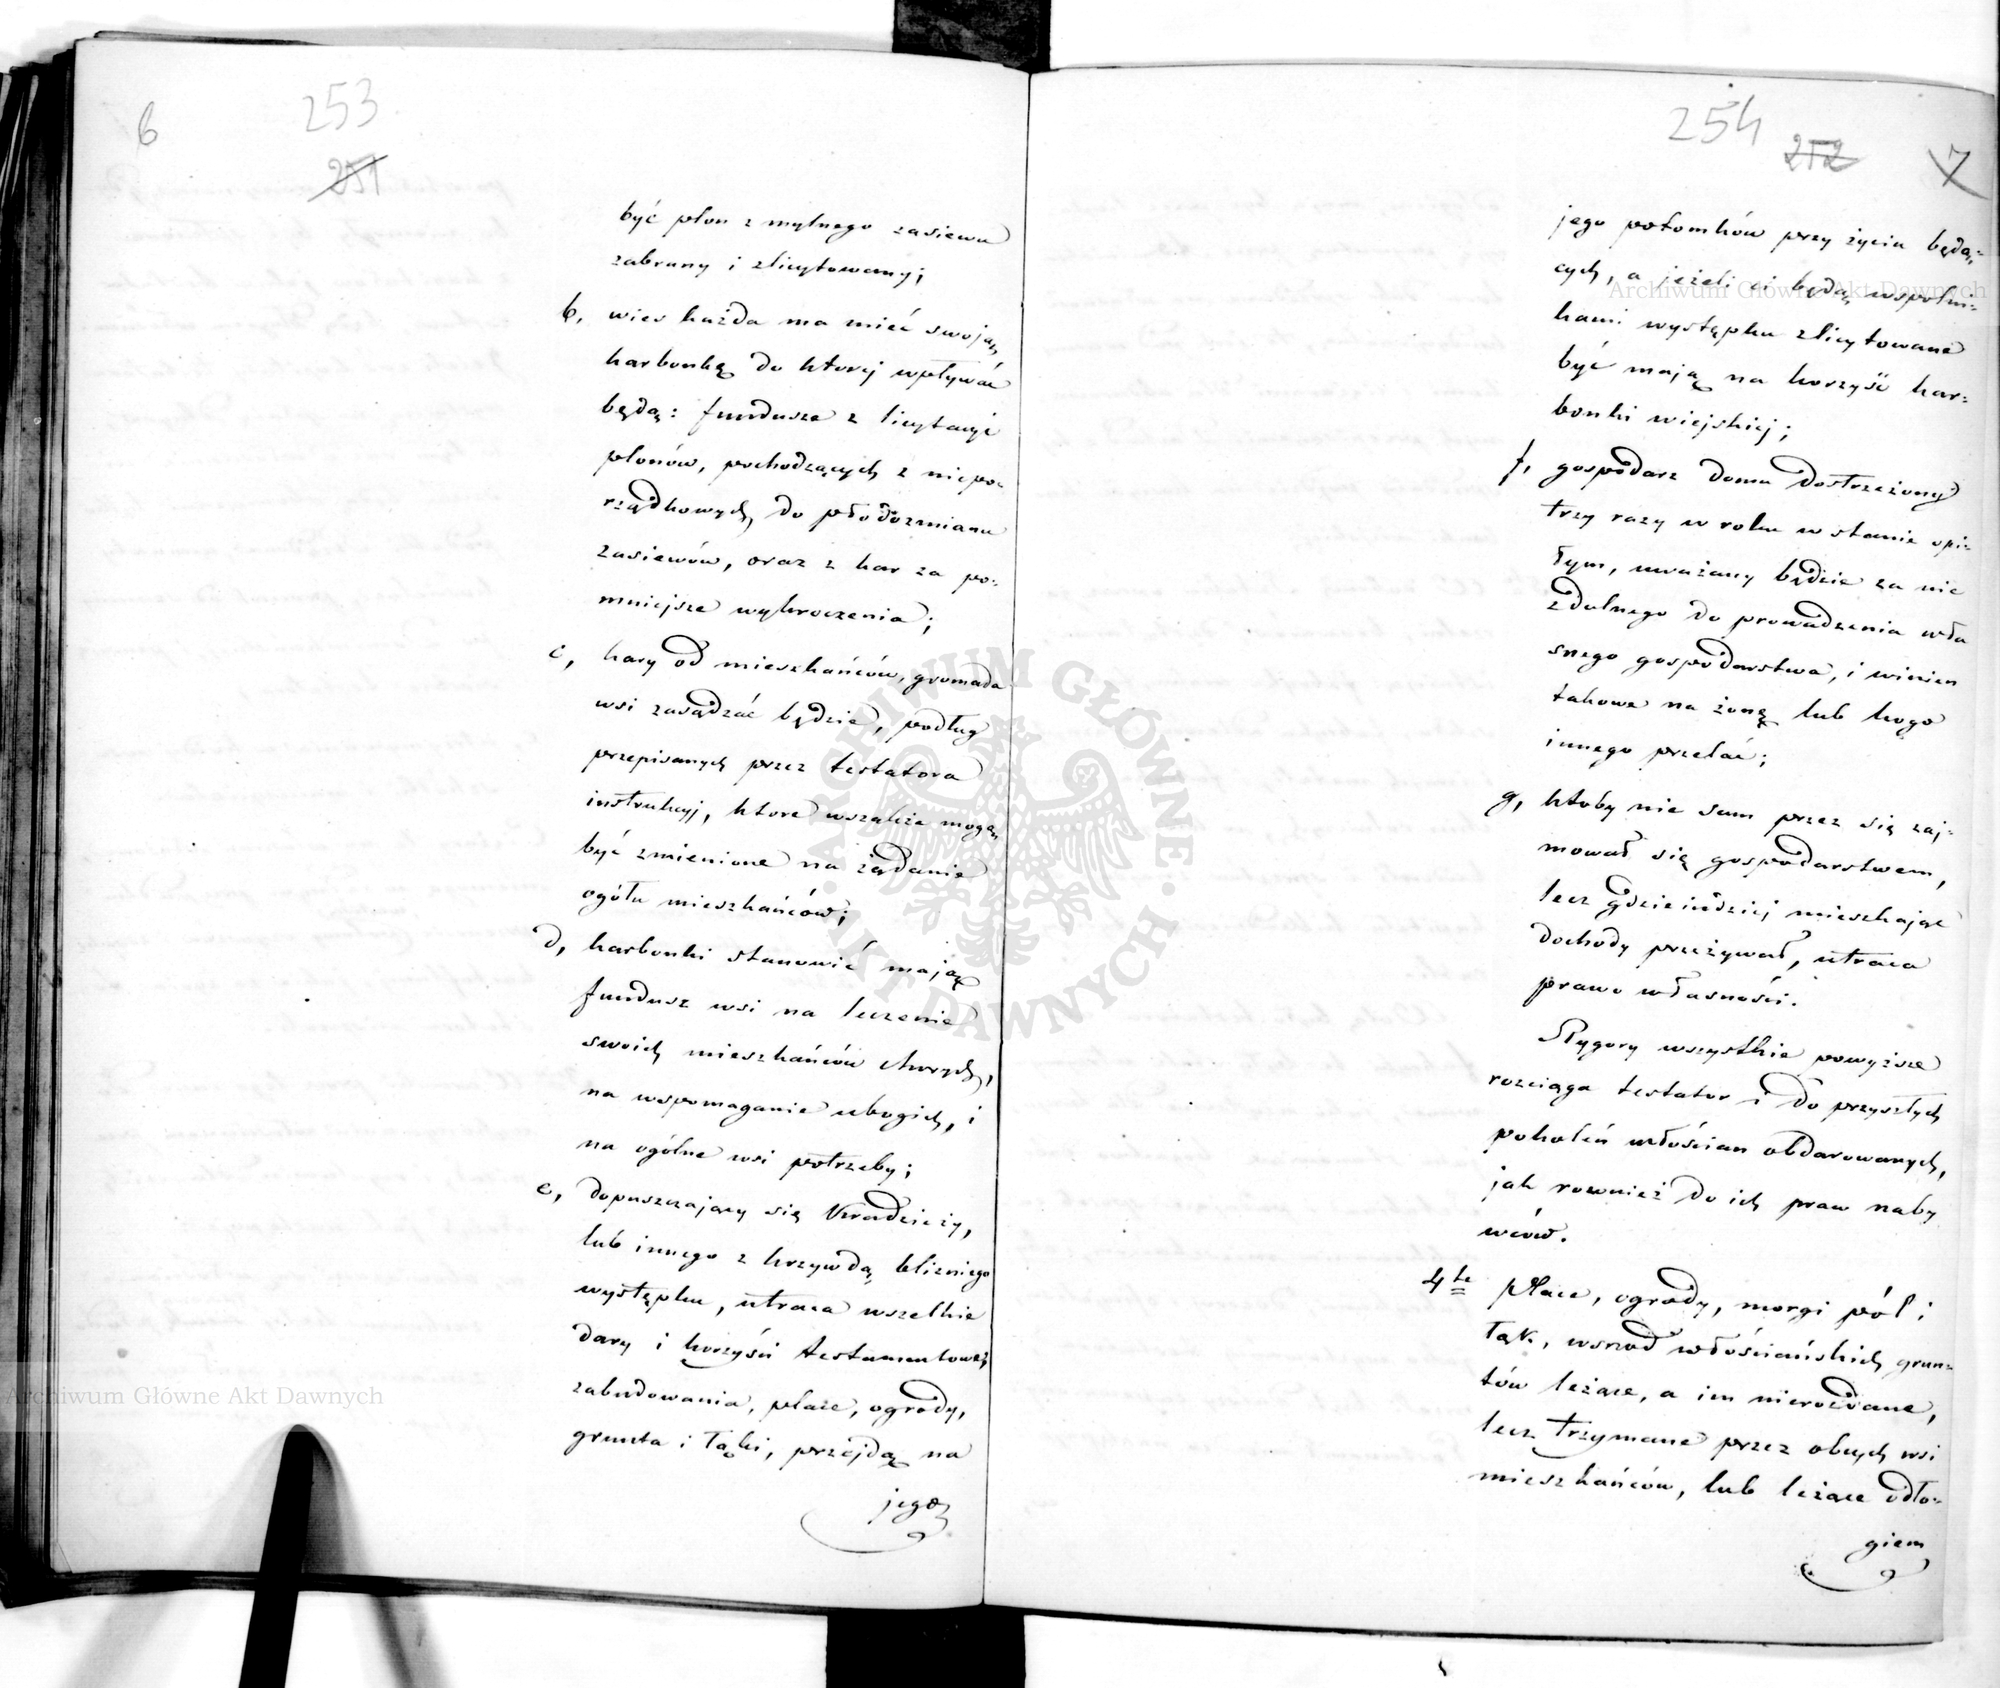 6
253
251
być plon z mylnego zasiewu
zabrany i zlicytowany;
b, wies każda ma mieć swoją
karbonkę do ktorej wpływać
będą: fundusze z licytacyi
plonów, pochodzących z niepo-
rządkowych do płodozmianu
zasiewów, oraz z kar za po-
mniejsze wykroczenia;
c, kary od mieszkańców, gromada
wsi zasądzać będzie, podług
przepisanych przez testatora
instrukcyj, ktore wszakże mogą
być zmienione na żądanie
ogółu mieszkańców;
d, karbonki stanowić mają
fundusz wsi na leczenie
swoich mieszkańców chorych,
na wspomaganie ubogich, i
na ogólne wsi potrzeby;
e, dopuszczający się kradzieży,
lub innego z krzywdą blizniego
występku, utraca wszelkie
dary i korzyści testamentowe,
zabudowania, place, ogrody,
grunta i łąki, przejdą na
jego
254
252
7
jego potomków przy życiu będą-
cych, a jeżeli ci będą wspolni-
kami występku zlicytowane
być mają na korzyść kar-
bonki wiejskiej;
f, gospodarz domu dostrzeżony
trzy razy w roku w stanie opi-
łym, uważany będzie za nie
zdolnego do prowadzenia wła
snego gospodarstwa, i winien
takowe na żonę lub kogo
innego przelać;
g, ktoby nie sam przez się zaj-
mował się gospodarstwem,
lecz gdzieindziej mieszkając
dochody przeżywał, utraca
prawo własności.
Rygory wszystkie powyższe
rozciąga testator i do przyszłych
pokoleń włościan obdarowanych,
jak rownież do ich praw naby
wców.
4te Place, ogrody, morgi pól i
łąk, wsrod włościańskich grun-
tów leżące, a im nierozdane,
lecz trzymane przez obcych wsi
mieszkańców, lub leżące odło-
giem
Archiwum Główne Akt Dawnych
Archiwum Główne Akt Dawnych
ARCHIWUM GŁÓWNE · AKT DAWNYCH ·